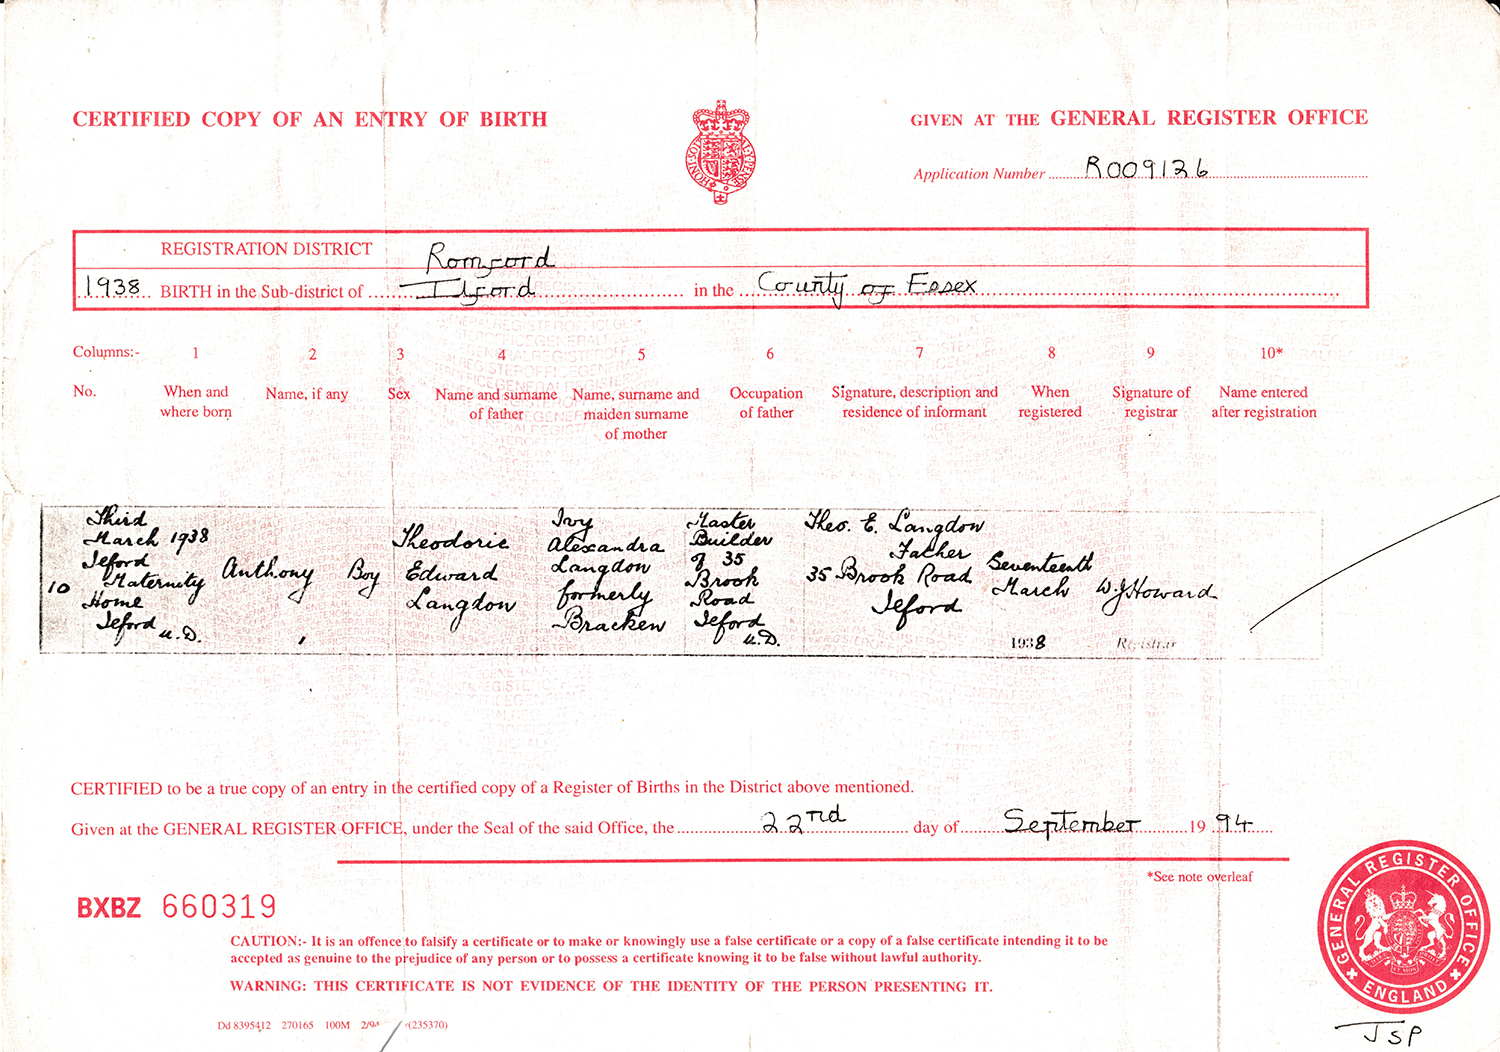 CERTIFIED COPY OF AN ENTRY OF BIRTH
GIVEN AT THE GENERAL REGISTER OFFICE
Application Number R009126
REGISTRATION DISTRICT Romford
1938 BIRTH in the Sub-district of Ilford in the County of Essex
Columns:- 1 2 3 4 5 6 7 8 9 10*
No.
When and
where born
Name, if any
Sex
Name and surname
of father
Name, surname and
maiden surname
of mother
Occupation
of father
Signature, description and
residence of informant
When
registered
Signature of
registrar
Name entered
after registration
10
Third
March 1938
Ilford
Maternity
Home
Ilford U.D.
Anthony
Boy
Theodoric
Edward
Langdon
Ivy
Alexandra
Langdon
formerly
Bracken
Master
Builder
of 35
Brook
Road
Ilford
U.D.
Theo. E. Langdon
Father
35 Brook Road
Ilford
Seventeenth
March
1938
W.J Howard
Registrar
CERTIFIED to be a true copy of an entry in the certified copy of a Register of Births in the District above mentioned.
Given at the GENERAL REGISTER OFFICE, under the Seal of the said Office, the 22nd day of September 1994
*See note overleaf
BXBZ 660319
CAUTION:- It is an offence to falsify a certificate or to make or knowingly use a false certificate or a copy of a false certificate intending it to be
accepted as genuine to the prejudice of any person or to possess a certificate knowing it to be false without lawful authority.
WARNING: THIS CERTIFICATE IS NOT EVIDENCE OF THE IDENTITY OF THE PERSON PRESENTING IT.
GENERAL REGISTER OFFICE
ENGLAND
Dd 8395412 270165 100M 2/94 (235370)
JSP